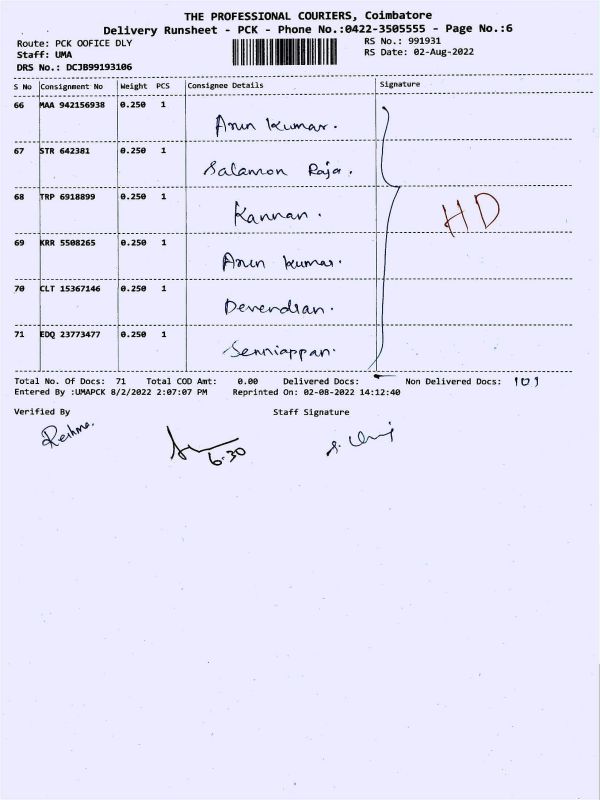 THE PROFESSIONAL COURIERS, Coimbatore
Delivery Runsheet - PCK - Phone No.:0422-3505555 - Page No.:6
Route: PCK OOFICE DLY RS No.: 991931
Staff: UMA RS Date: 02-Aug-2022
DRS No.: DCJB99193106
S No Consignment No Weight PCS Consignee Details Signature
66 MAA 942156938 0.250 1
Arun Kumar.
67 STR 642381 0.250 1
Salamon Raja.
68 TRP 6918899 0.250 1
Kannan. HD
69 KRR 5508265 0.250 1
Arun Kumar.
70 CLT 15367146 0.250 1
Devendran.
71 EDQ 23773477 0.250 1
Senniappan.
Total No. Of Docs: 71 Total COD Amt: 0.00 Delivered Docs: Non Delivered Docs:
Entered By :UMAPCK 8/2/2022 2:07:07 PM Reprinted On: 02-08-2022 14:12:40
Verified By Staff Signature
Reshma.
6-30